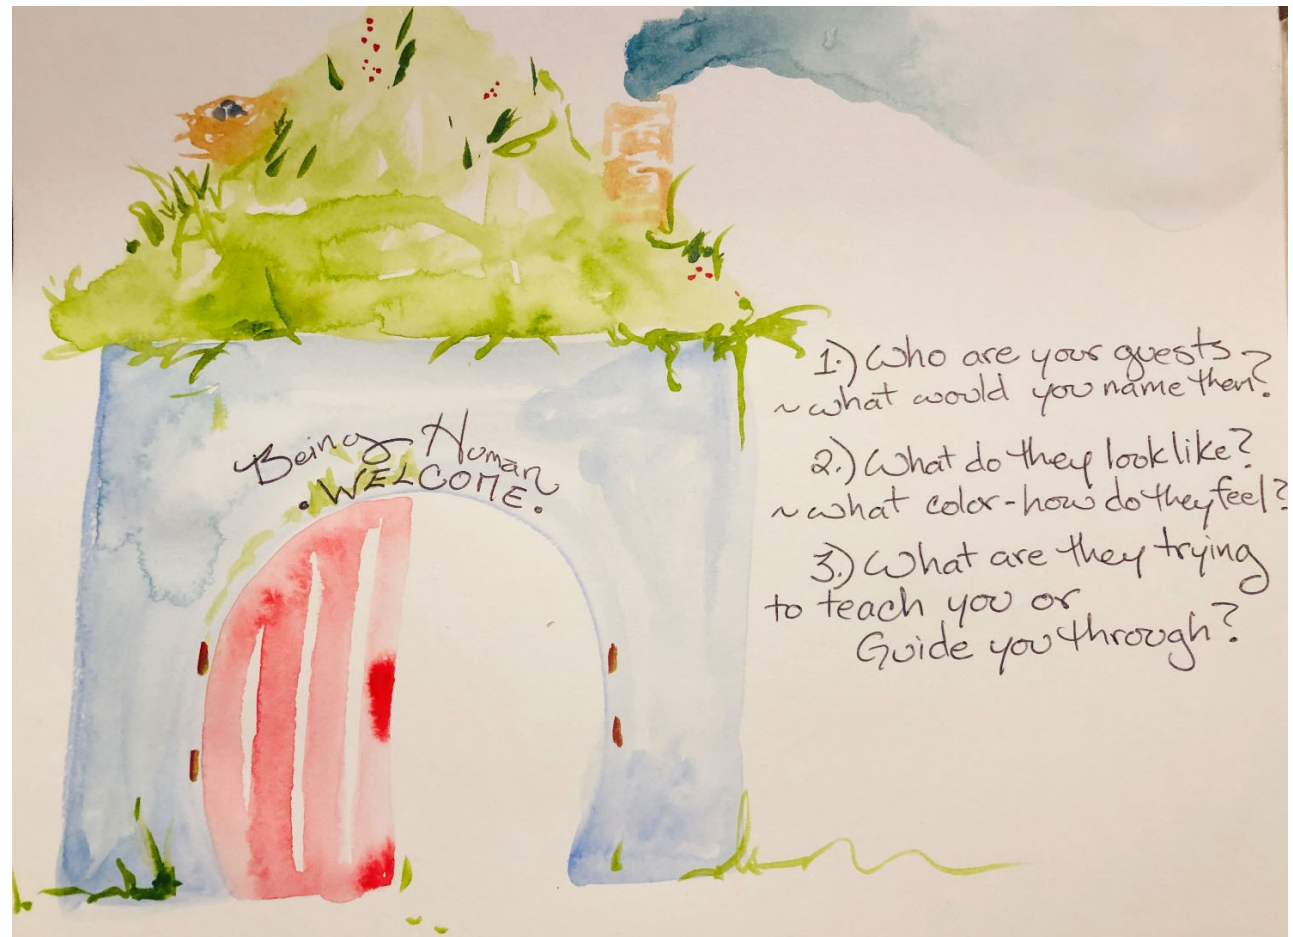 Being Human
. WELCOME .
1.) Who are your guests
~ what would you name them?
2.) What do they look like?
~ what color - how do they feel?
3.) What are they trying
to teach you or
Guide you through?